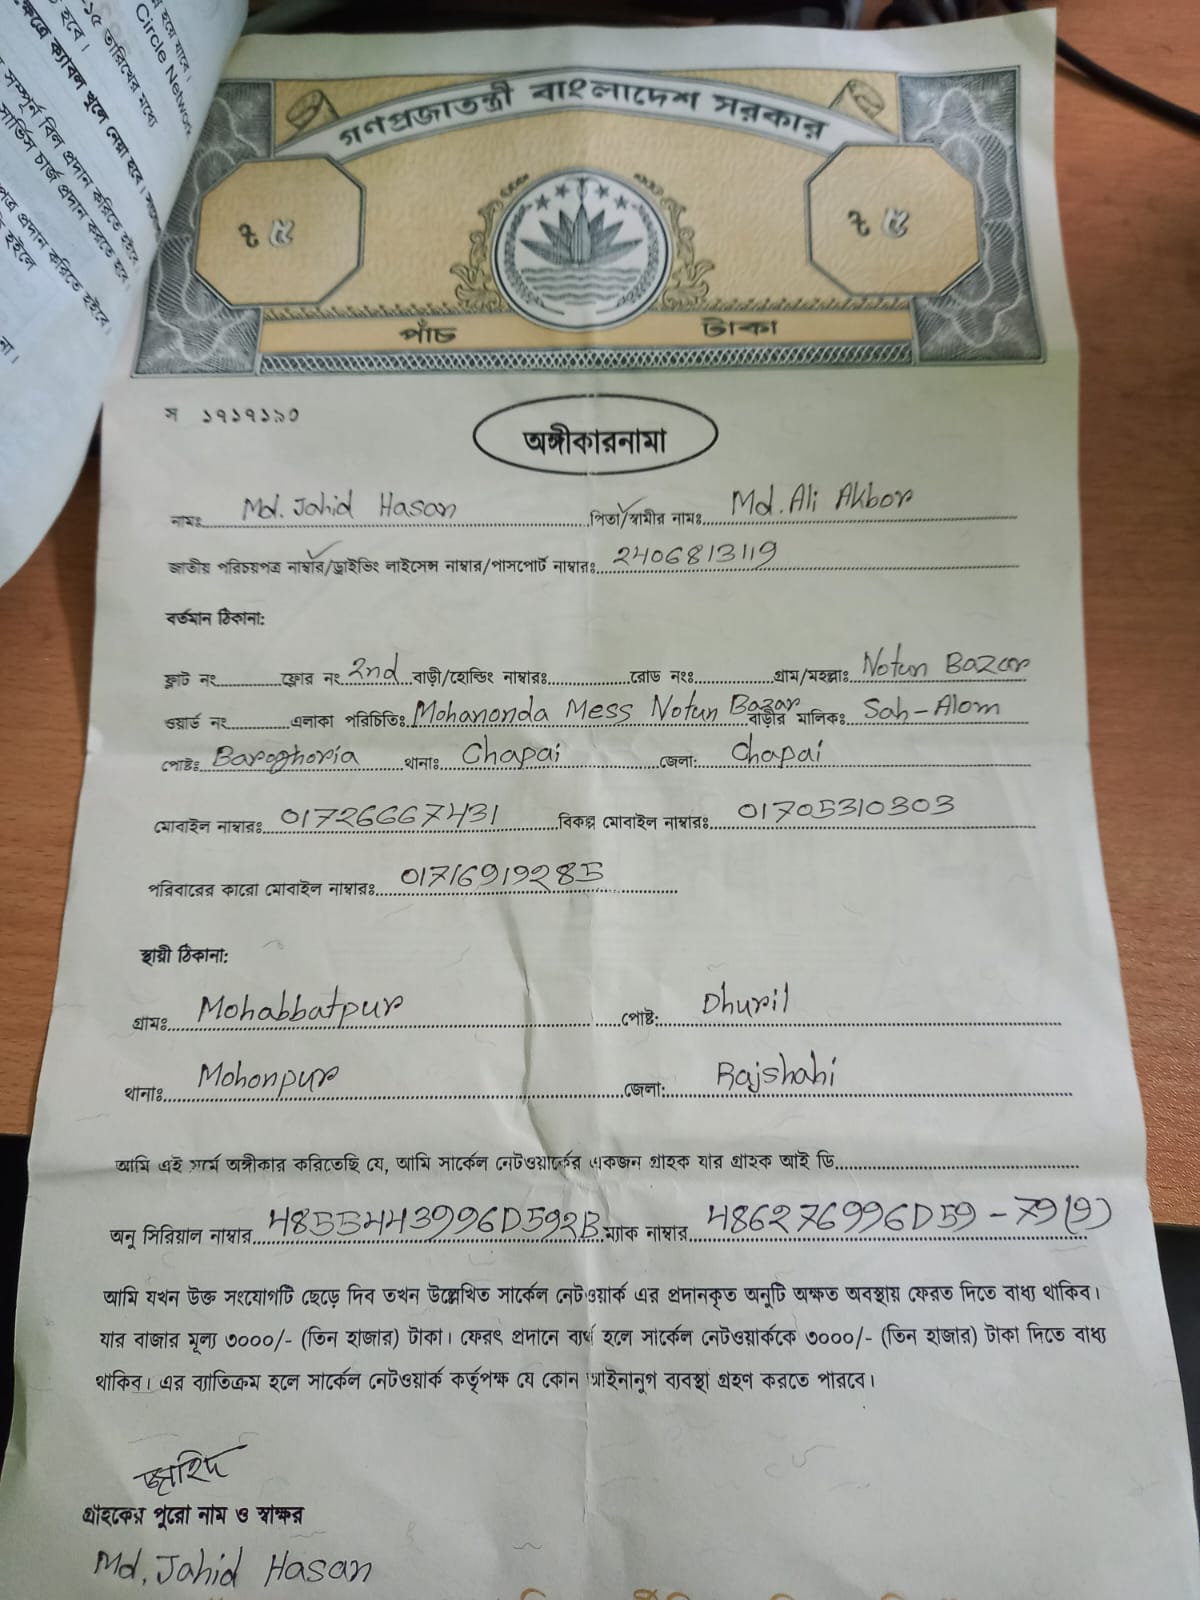 হয়ে যাবে।
Circle Network
১৫ তারিখের মধ্যে
হবে।
ক্ষেত্রে ক্যাবল খুলে নেয়া হবে।
সম্পূর্ন বিল প্রদান করিতে হইবে
সার্ভিস চার্জ প্রদান করতে হবে।
পত্র প্রদান করিতে হইবে।
হইলে
না।
গণপ্রজাতন্ত্রী বাংলাদেশ সরকার
৳ ৫ ৳ ৫
পাঁচ টাকা
স ১৭১৭১৯০
অঙ্গীকারনামা
নামঃ Md. Jahid Hasan পিতা/স্বামীর নামঃ Md. Ali Akbor
জাতীয় পরিচয়পত্র নাম্বার/ড্রাইভিং লাইসেন্স নাম্বার/পাসপোর্ট নাম্বারঃ 2406813119
বর্তমান ঠিকানা:
ফ্লাট নং ফ্লোর নং 2nd বাড়ী/হোল্ডিং নাম্বারঃ রোড নংঃ গ্রাম/মহল্লাঃ Notun Bazar
ওয়ার্ড নং এলাকা পরিচিতিঃ Mohanonda Mess Notun Bazar বাড়ীর মালিকঃ Sah-Alom
পোষ্টঃ Baroghoria থানাঃ Chapai জেলা: Chapai
মোবাইল নাম্বারঃ 01726667431 বিকল্প মোবাইল নাম্বারঃ 01705310303
পরিবারের কারো মোবাইল নাম্বারঃ 01716919285
স্থায়ী ঠিকানা:
গ্রামঃ Mohabbatpur পোষ্ট: Dhuril
থানাঃ Mohonpur জেলা: Rajshahi
আমি এই মর্মে অঙ্গীকার করিতেছি যে, আমি সার্কেল নেটওয়ার্কের একজন গ্রাহক যার গ্রাহক আই ডি
অনু সিরিয়াল নাম্বার 4855443996D592B ম্যাক নাম্বার 486276996D59-79(9)
আমি যখন উক্ত সংযোগটি ছেড়ে দিব তখন উল্লেখিত সার্কেল নেটওয়ার্ক এর প্রদানকৃত অনুটি অক্ষত অবস্থায় ফেরত দিতে বাধ্য থাকিব।
যার বাজার মূল্য ৩০০০/- (তিন হাজার) টাকা। ফেরৎ প্রদানে ব্যর্থ হলে সার্কেল নেটওয়ার্ককে ৩০০০/- (তিন হাজার) টাকা দিতে বাধ্য
থাকিব। এর ব্যাতিক্রম হলে সার্কেল নেটওয়ার্ক কর্তৃপক্ষ যে কোন আইনানুগ ব্যবস্থা গ্রহণ করতে পারবে।
জাহিদ
গ্রাহকের পুরো নাম ও স্বাক্ষর
Md. Jahid Hasan